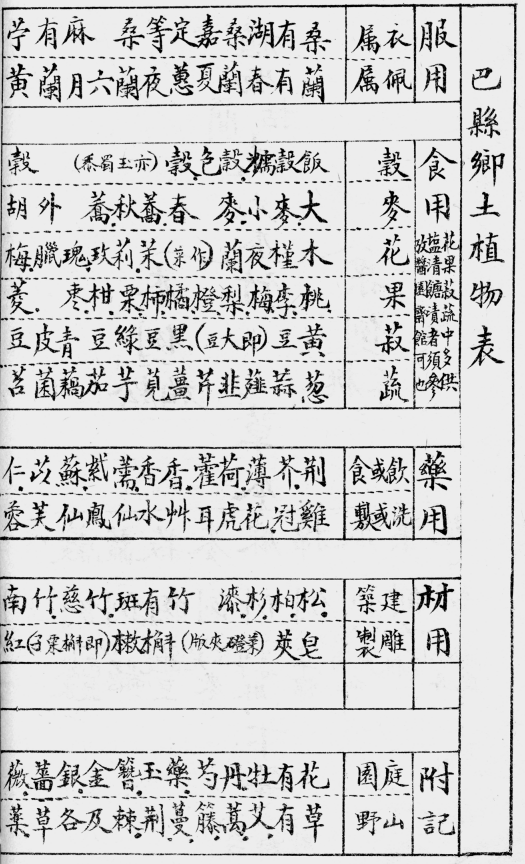 巴縣鄉土植物表
服用
衣属 桑有湖桑嘉定等桑 麻有苧
佩属 蘭有春蘭夏蕙夜蘭六月蘭黃
食用
花果菽蔬中多供
鹽清糖漬者須參
攷醬園齋館可也
穀 飯穀糯穀色穀(亦玉蜀黍) 穀
麥 大麥小麥 春蕎秋蕎 外胡
花 木槿夜蘭(作菜)茉莉玫瑰臘梅
果 桃李梅梨橙橘柿栗柑枣 菱
菽 黃豆(即大豆)黑豆綠豆青皮豆
蔬 葱蒜薤韭芹薑莧芋茄藕菌苕
藥用
飲或食 荆芥薄荷藿香香薷紫蘇苡仁
洗或敷 雞冠花虎耳艸水仙鳳仙芙蓉
材用
建築 松柏杉漆 竹有斑竹慈竹南
雕製 皂莢(夾版)(即栗子)紅
附記
庭園 花有牡丹芍藥玉簪金銀薔薇
山野 草有艾葛籐蔓荆棘及各草藥